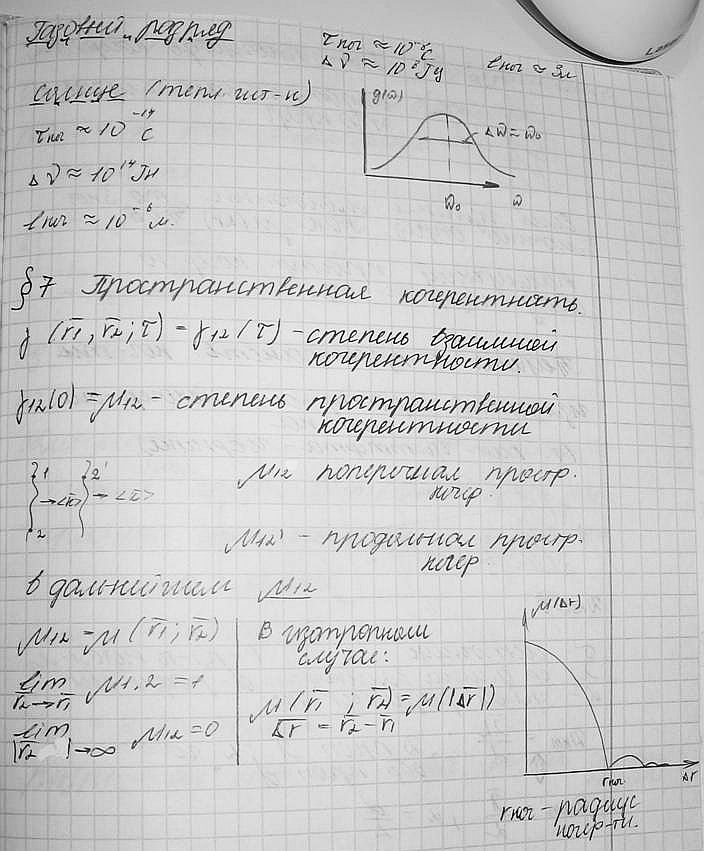 Газовый разряд
τког ≈ 10⁻⁸ с
Δν ≈ 10⁸ Гц lког ≈ 3м
солнце (тепл. ист-к)
τког ≈ 10⁻¹⁴ с
Δν ≈ 10¹⁴ Гц
lког ≈ 10⁻⁶ м.
g(ω)
Δω ≈ ω₀
ω₀ ω
§7 Пространственная когерентность.
γ (r̄₁, r̄₂; τ) = γ₁₂(τ) – степень взаимной
когерентности.
γ₁₂(0) = μ₁₂ – степень пространственной
когерентности
1 2'
→<k̄> → <k̄>
2
μ₁₂ поперечная простр.
когер.
μ₁₂' – продольная простр.
когер.
в дальнейшем μ₁₂
μ₁₂ = μ (r̄₁; r̄₂)
lim μ1,2 = 1
r̄₂→r̄₁
lim μ₁₂ = 0
|r̄₂ |→∞
В изотропном
случае:
μ(r̄₁ ; r̄₂) = μ(|Δr̄|)
Δr̄ = r̄₂ – r̄₁
μ(Δr)
rког Δr
rког – радиус
когер-ти.